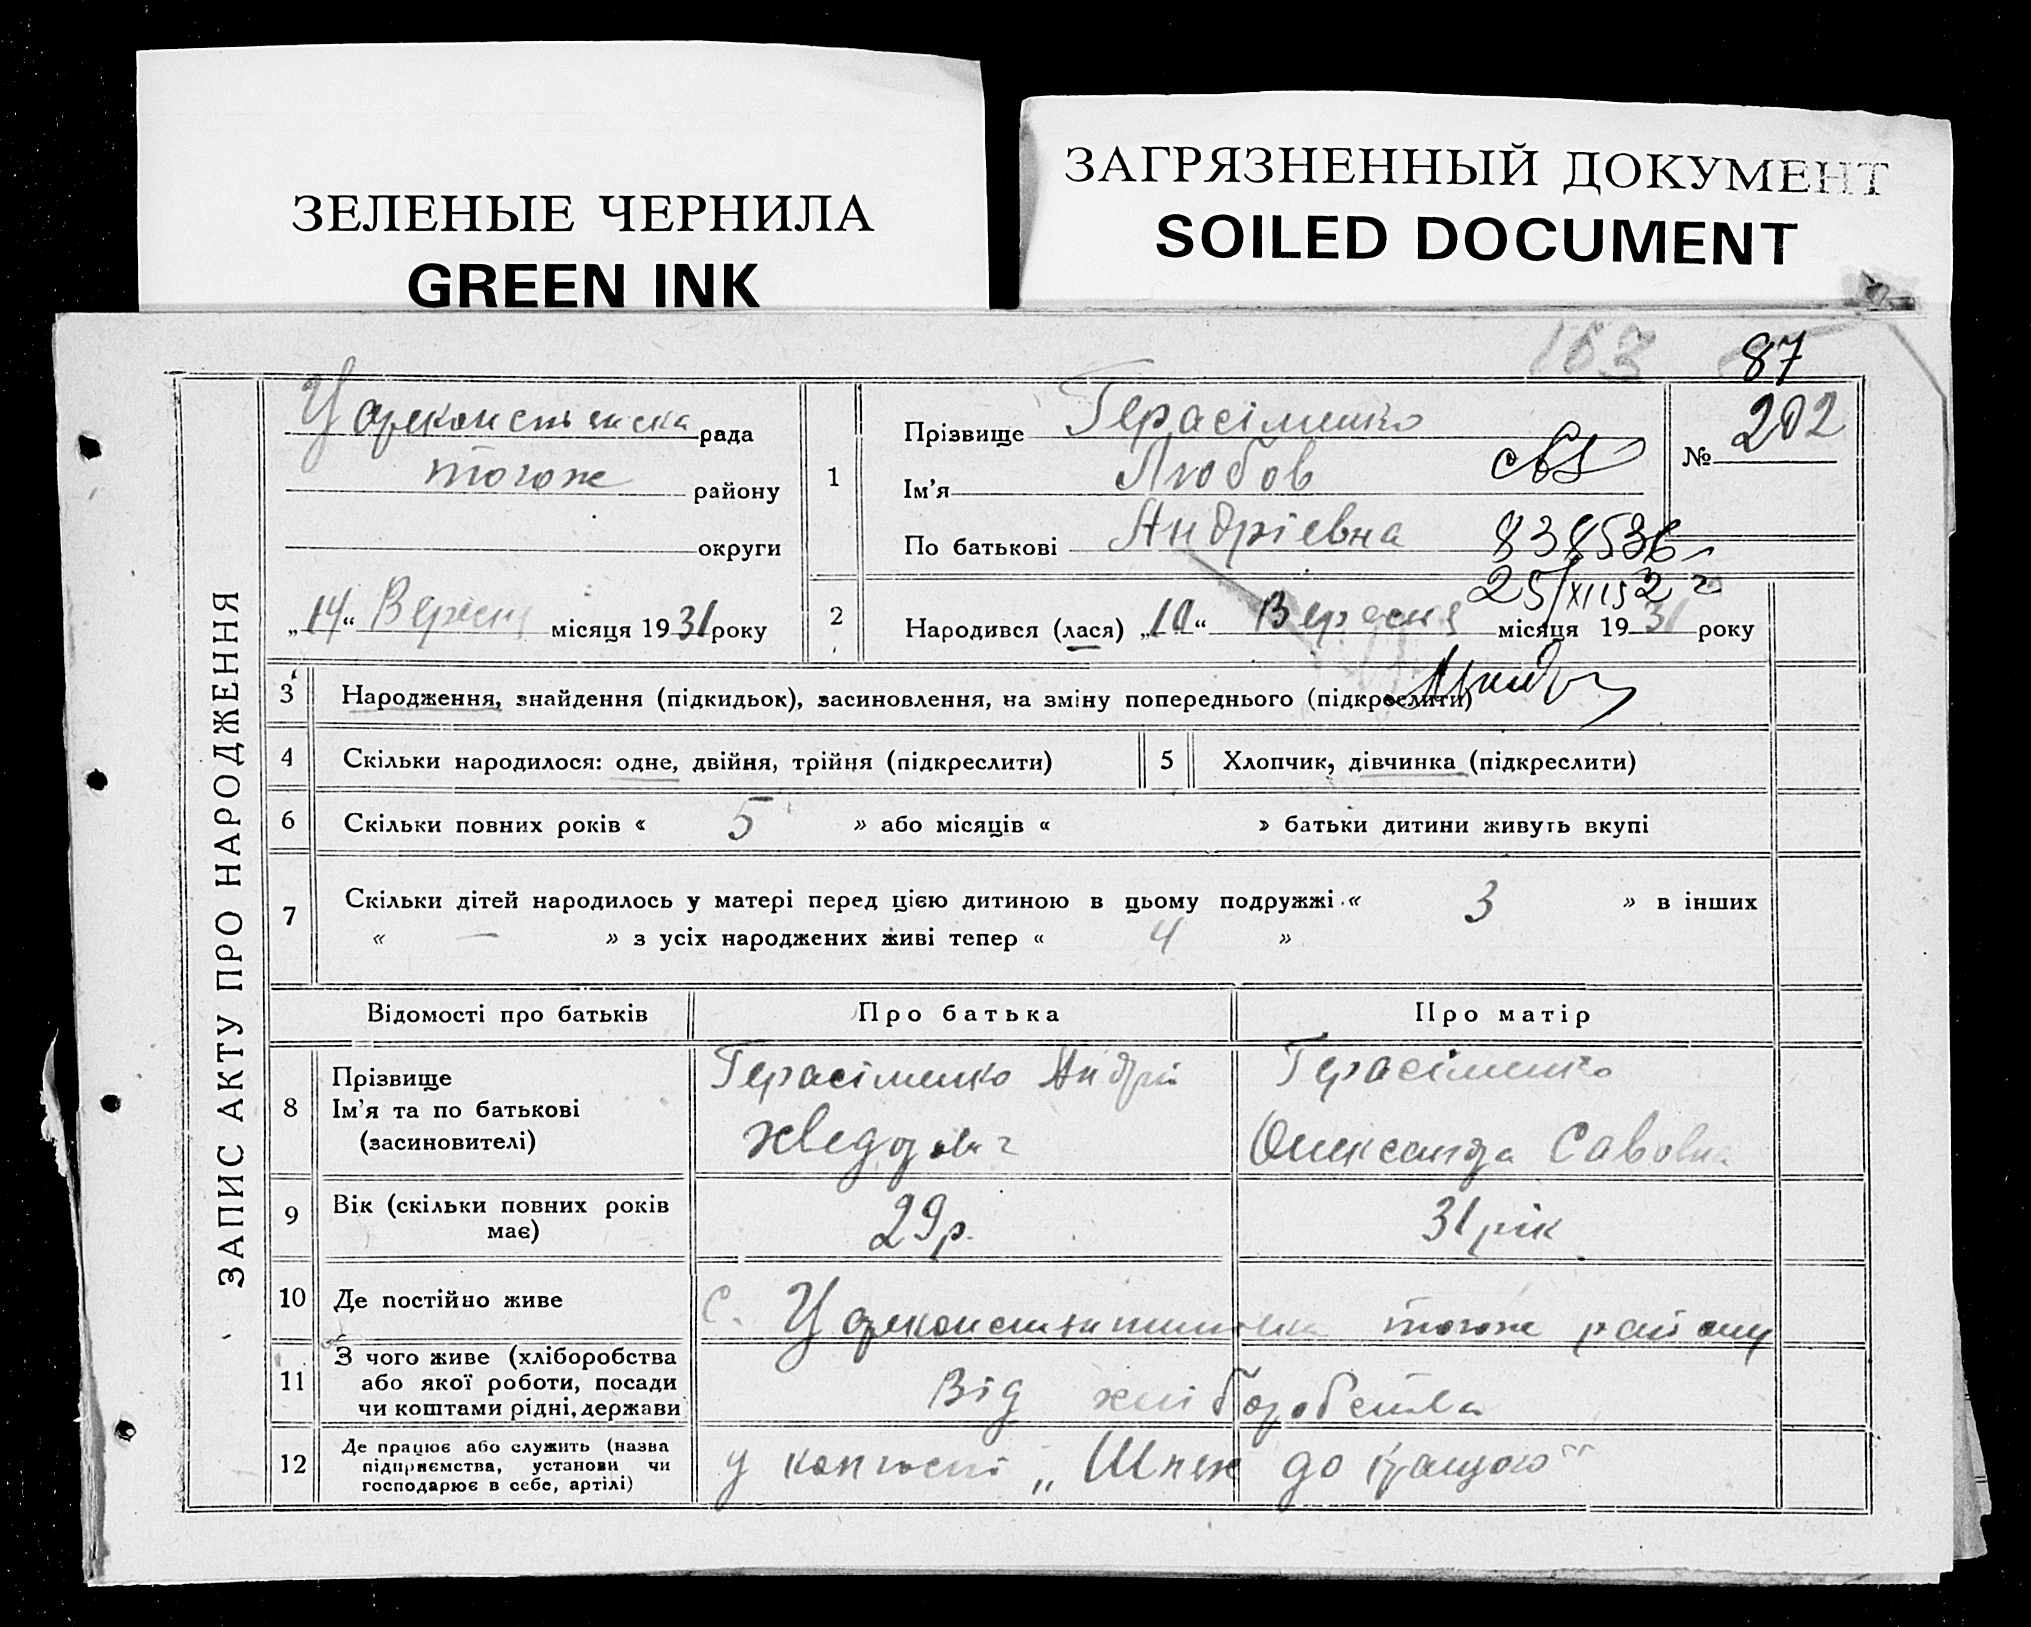 ЗЕЛЕНЫЕ ЧЕРНИЛА
GREEN INK
ЗАГРЯЗНЕННЫЙ ДОКУМЕНТ
SOILED DOCUMENT
163
87
ЗАПИС АКТУ ПРО НАРОДЖЕННЯ
рада
тогож району
округи
„14“ Вересня місяця 1931 року
1
Прізвище Герасіменко
Ім’я Любов
По батькові Андріевна
№ 202
838536
25/XII 52 г
2
Народився (лася) „10“ Вересня місяця 1931 року
3 Народження, знайдення (підкидьок), засиновлення, на зміну попереднього (підкреслити)
4 Скільки народилося: одне, двійня, трійня (підкреслити) 5 Хлопчик, дівчинка (підкреслити)
6 Скільки повних років « 5 » або місяців « » батьки дитини живуть вкупі
7 Скільки дітей народилось у матері перед цією дитиною в цьому подружжі « 3 » в інших
« — » з усіх народжених живі тепер « 4 »
Відомості про батьків Про батька Про матір
8 Прізвище
Ім’я та по батькові
(засиновителі)
Герасіменко Андрій
Хведдович
Герасіменко
Олександа Савовна
9 Вік (скільки повних років
має)
29 р. 31 рік
10 Де постійно живе с. тогож району
11 З чого живе (хліборобства
або якої роботи, посади
чи коштами рідні, держави
Від хліборобства
12 Де працює або служить (назва
підприємства, установи чи
господарює в себе, артілі)
у колгоспі „Шлях до кращого“